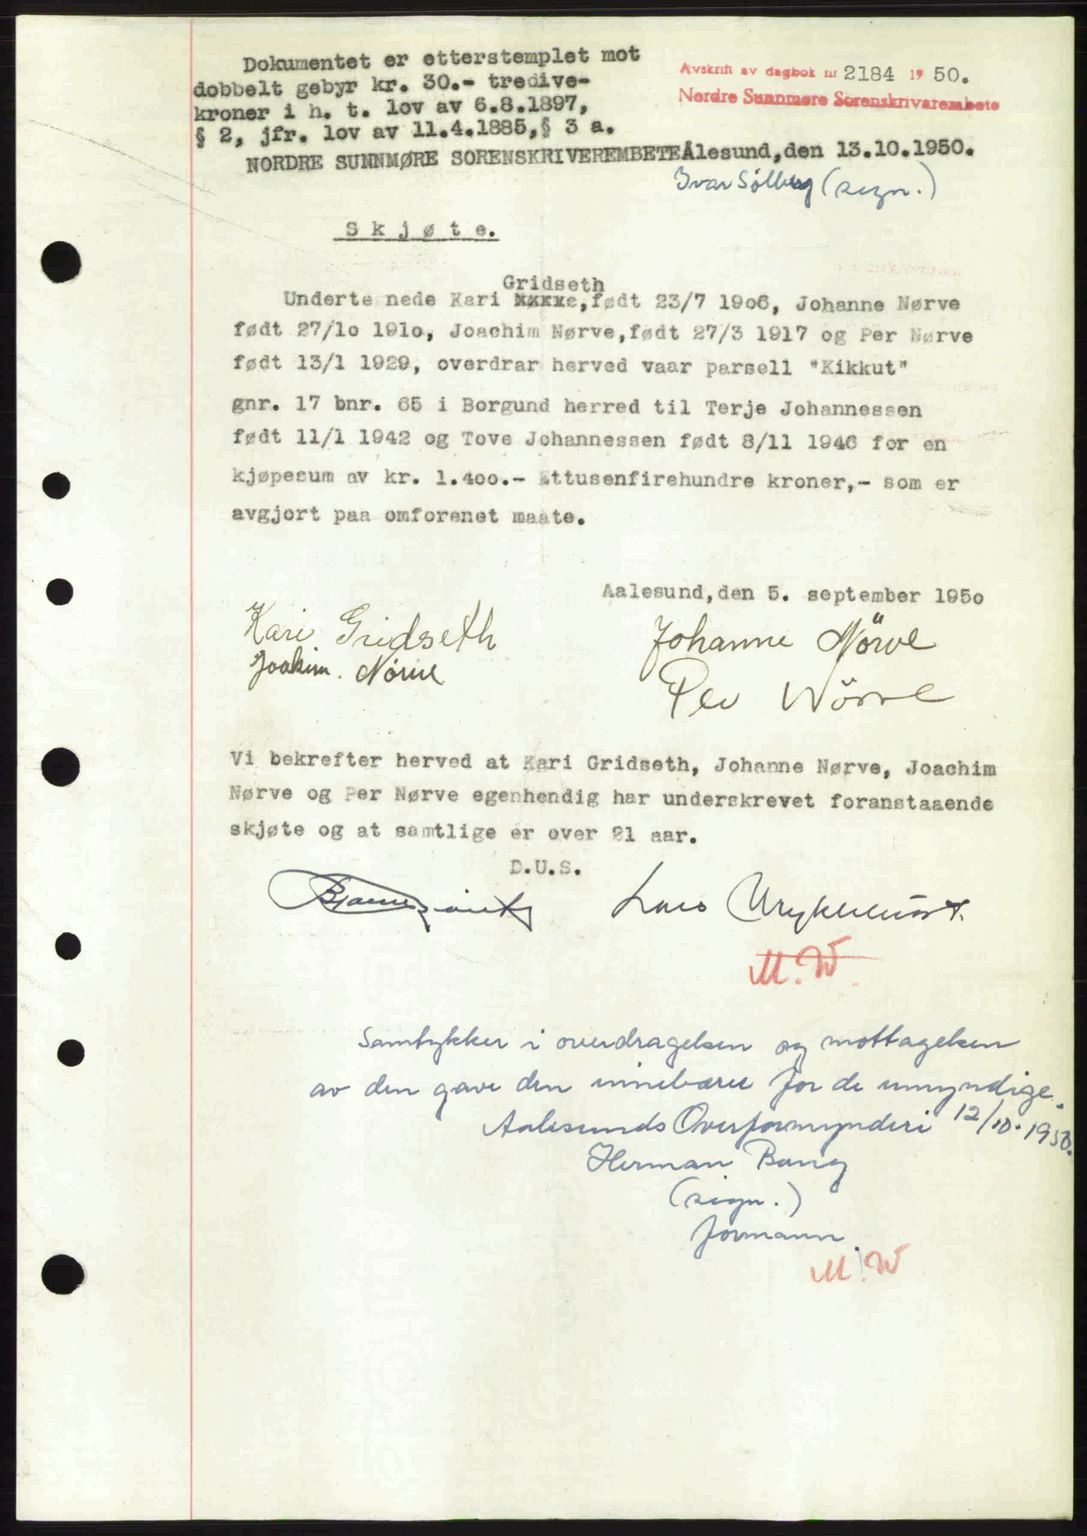 Dokumentet er etterstemplet mot
dobbelt gebyr kr. 30.- tredive-
kroner i h. t. lov av 6.8.1897,
§ 2, jfr. lov av 11.4.1885,§ 3 a.
Avskrift av dagbok nr 2184 19 50.
Nordre Sunnmøre Sorenskriverembete
NORDRE SUNNMØRE SORENSKRIVEREMBETE Ålesund,den 13.10.1950.
Ivar Sølberg (sign.)
S k j ø t e.
Gridseth
Underte nede Kari ,født 23/7 1906, Johanne Nørve
født 27/1o 191o, Joachim Nørve,født 27/3 1917 og Per Nørve
født 13/1 1929, overdrar herved vaar parsell "Kikkut"
gnr. 17 bnr. 65 i Borgund herred til Terje Johannessen
født 11/1 1942 og Tove Johannessen født 8/11 1946 for en
kjøpesum av kr. 1.4oo.- Ettusenfirehundre kroner,- som er
avgjort paa omforenet maate.
Aalesund,den 5. september 195o
Kari Gridseth Johanne Nörve
Joakim. Nörve Per Nörve
Vi bekrefter herved at Kari Gridseth, Johanne Nørve, Joachim
Nørve og Per Nørve egenhendig har underskrevet foranstaaende
skjøte og at samtlige er over 21 aar.
D.U.S.
Bjarne Lars
M.W.
Samtykker i overdragelsen og mottagelsen
av den gave den innebærer for de umyndige.
Aalesunds Overformynderi 12/10.1950.
Herman Bang
(sign.)
formann.
M.W